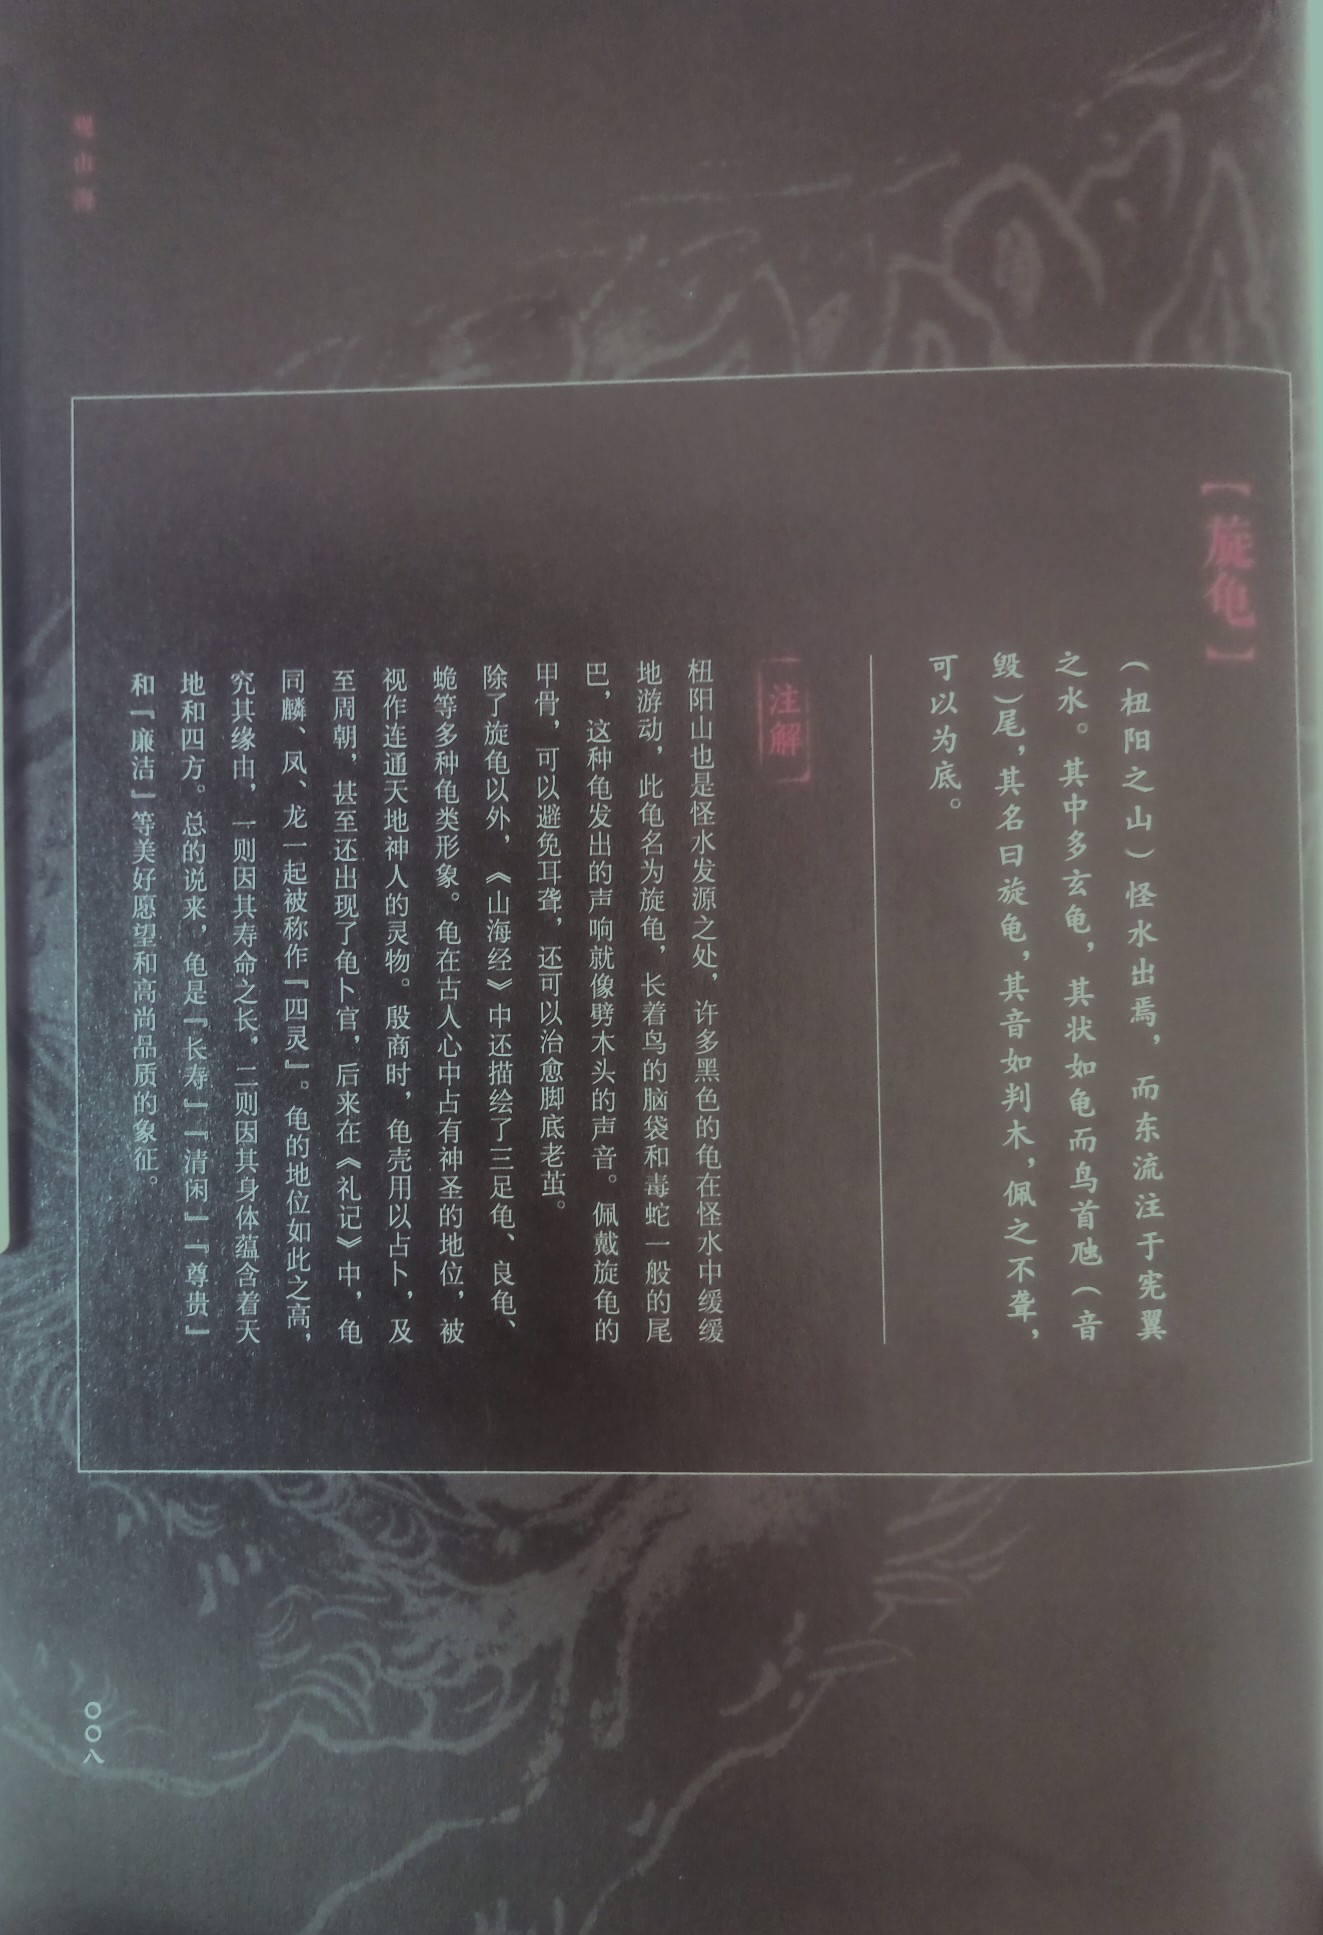 【旋龟】
（杻阳之山）怪水出焉，而东流注于宪翼
之水。其中多玄龟，其状如龟而鸟首虺（音
毁）尾，其名曰旋龟，其音如判木，佩之不聋，
可以为底。
【注解】
杻阳山也是怪水发源之处，许多黑色的龟在怪水中缓缓
地游动，此龟名为旋龟，长着鸟的脑袋和毒蛇一般的尾
巴，这种龟发出的声响就像劈木头的声音。佩戴旋龟的
甲骨，可以避免耳聋，还可以治愈脚底老茧。
除了旋龟以外，《山海经》中还描绘了三足龟、良龟、
蛫等多种龟类形象。龟在古人心中占有神圣的地位，被
视作连通天地神人的灵物。殷商时，龟壳用以占卜，及
至周朝，甚至还出现了龟卜官，后来在《礼记》中，龟
同麟、凤、龙一起被称作『四灵』。龟的地位如此之高，
究其缘由，一则因其寿命之长，二则因其身体蕴含着天
地和四方。总的说来，龟是『长寿』『清闲』『尊贵』
和『廉洁』等美好愿望和高尚品质的象征。
观山海
〇〇八